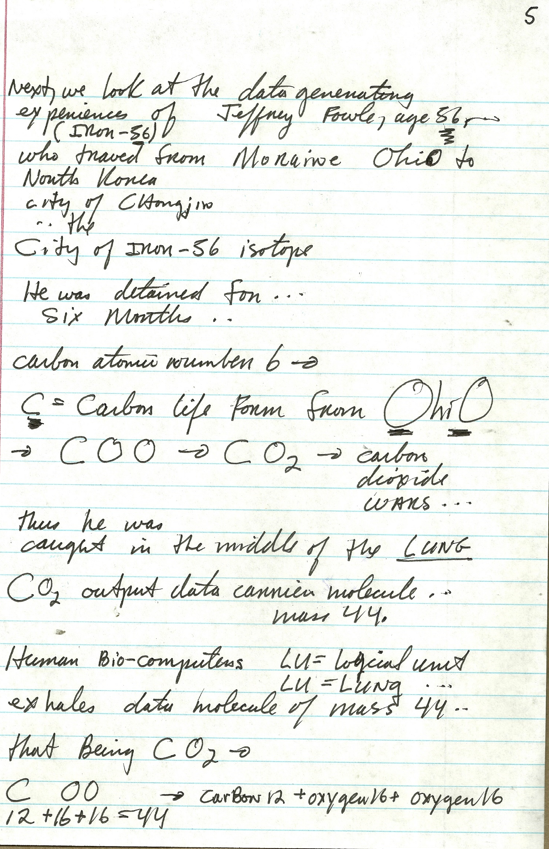 5
Next, we look at the data generating
experiences of Jeffrey Fowle, age 56, →
(Iron-56)
who traved from Moraine Ohio to
North Korea
city of CHongjin
.. the
City of Iron-56 isotope
He was detained for ...
Six Months ..
carbon atomic number 6 →
C = Carbon life Form from OhiO
→ COO → CO2 → carbon
dioxide
WARS ...
thus he was
caught in the middle of the LUNG
CO2 output data carrier molecule ..
mass 44.
Human Bio-computers LU = logical unit
LU = LUng ...
exhales data molecule of mass 44 ..
that Being CO2 →
C OO → carBon 12 + oxygen 16 + oxygen 16
12 + 16 + 16 = 44